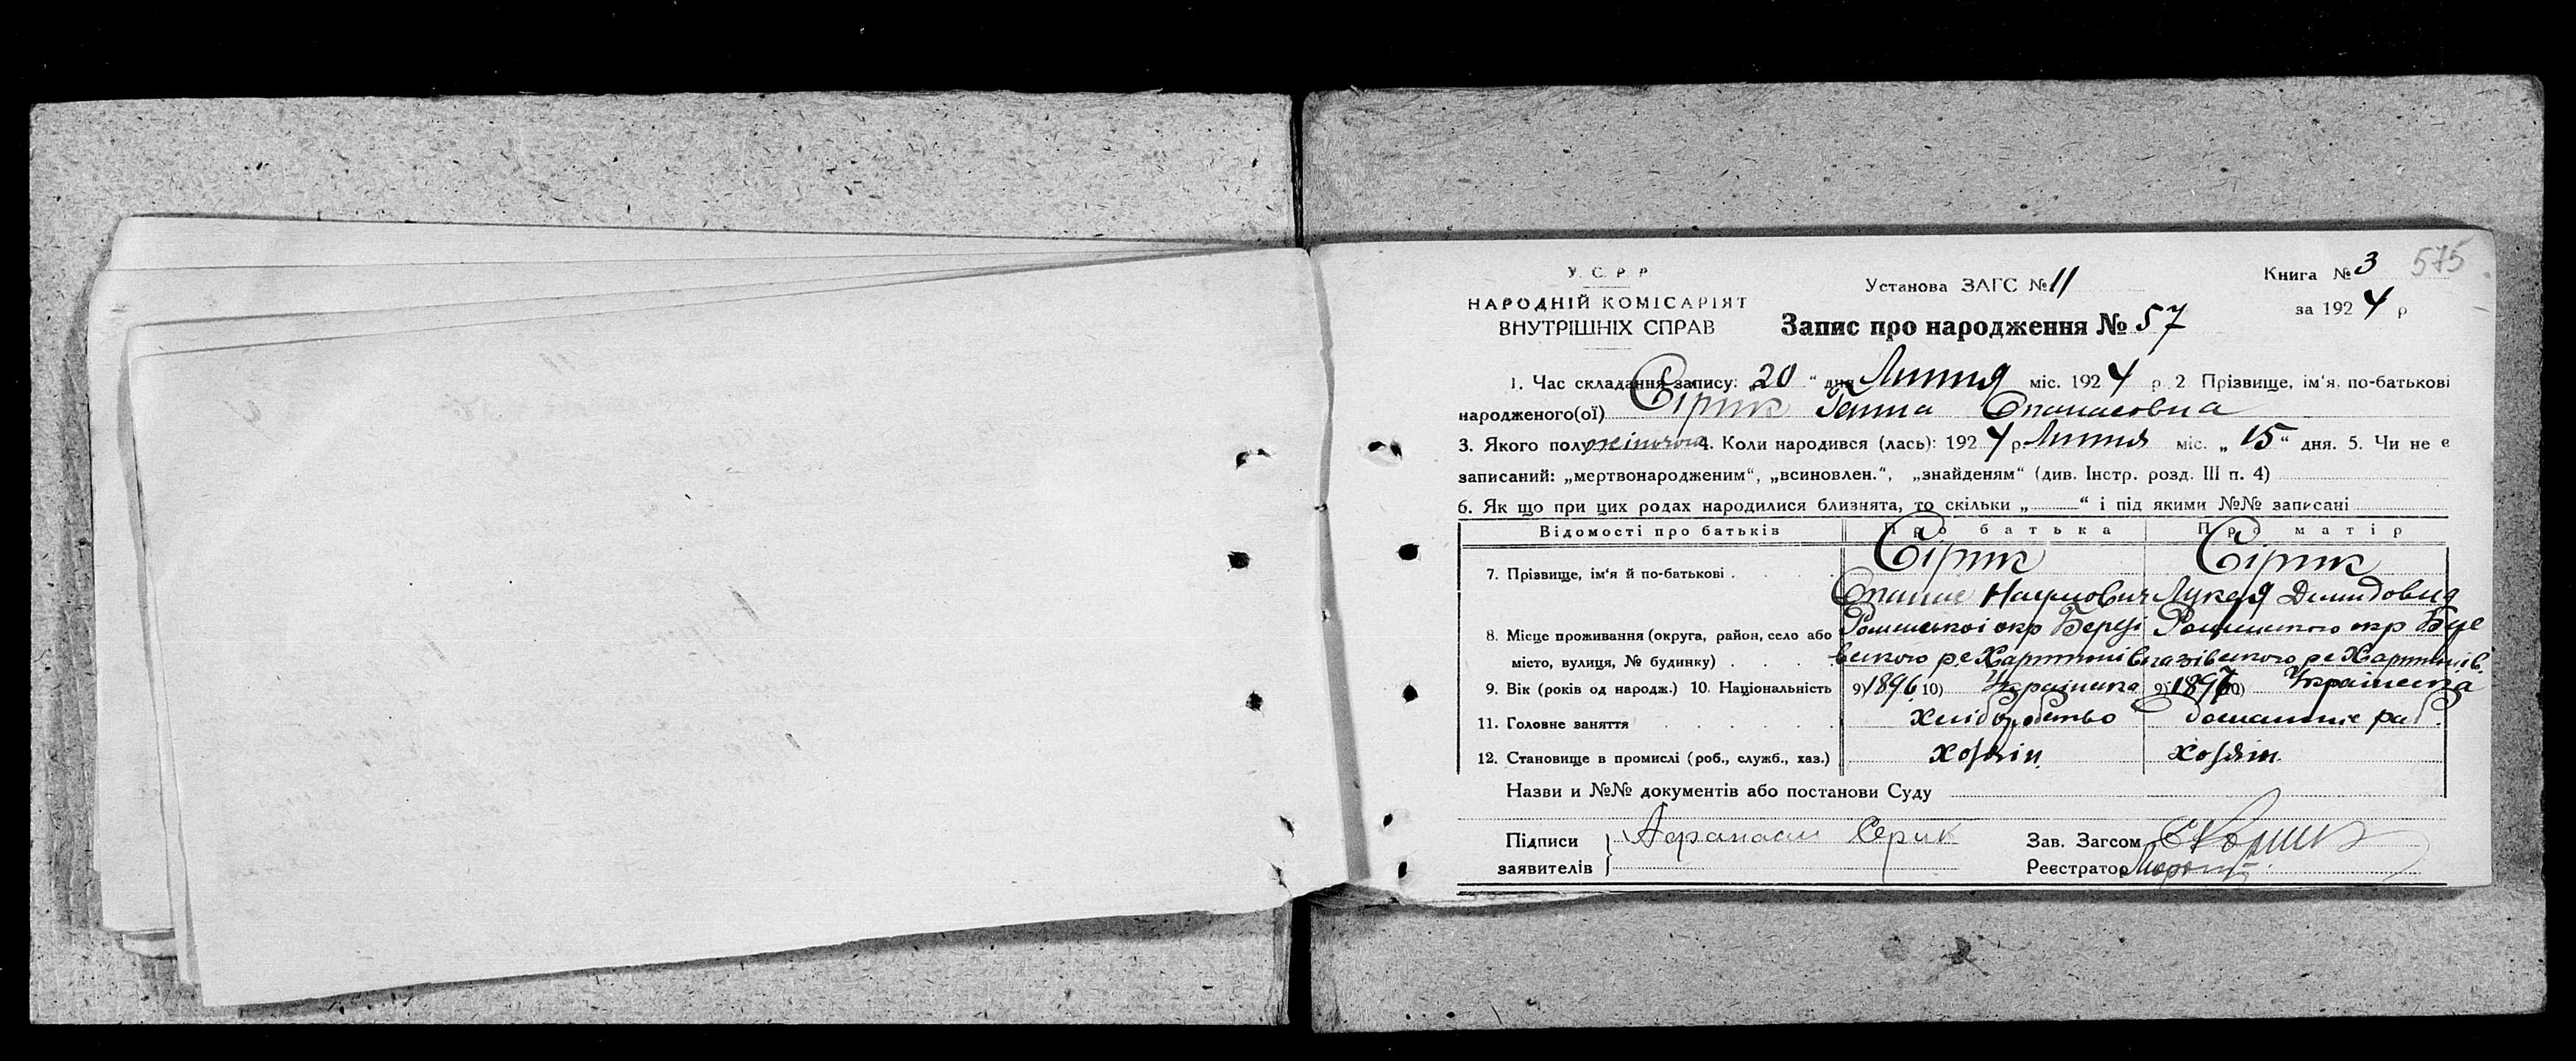 575
У. С. Р. Р.
НАРОДНІЙ КОМІСАРІЯТ
ВНУТРІШНІХ СПРАВ
Установа ЗАГС № 11
Книга № 3
за 1924 р
Запис про народження № 57
1. Час складання запису: „20“ дня Липня міс. 1924 р. 2 Прізвище, ім‘я, по-батькові
народженого(ої) Сірик Ганна Опанасовна
3. Якого полу жіночого 4. Коли народився (лась): 1924 р. Липня міс. „15“ дня. 5. Чи не є
записаний: „мертвонародженим“, „всиновлен.“, „знайденям“ (див. Інстр. розд. III п. 4)
6. Як що при цих родах народилися близнята, то скільки „ “ і під якими №№ записані
Відомості про батьків Про батька Про матір
7. Прізвище, ім‘я й по-батькові Сірик Сірик
Опанас Наумович Лукея Демидовна
8. Місце проживання (округа, район, село або Роменської окр Березі Роменського окр Бере
місто, вулиця, № будинку) вського р. зівського р.
9. Вік (років од народж.) 10. Національність 9) 1896 10) Українська 9) 1897 10) Українська
11. Головне заняття хліборобство домашнє раб.
12. Становище в промислі (роб., служб., хаз.) хозяін хозяін
Назви и №№ документів або постанови Суду
Підписи заявителів Афранаси Серик
Зав. Загсом
Реєстратор